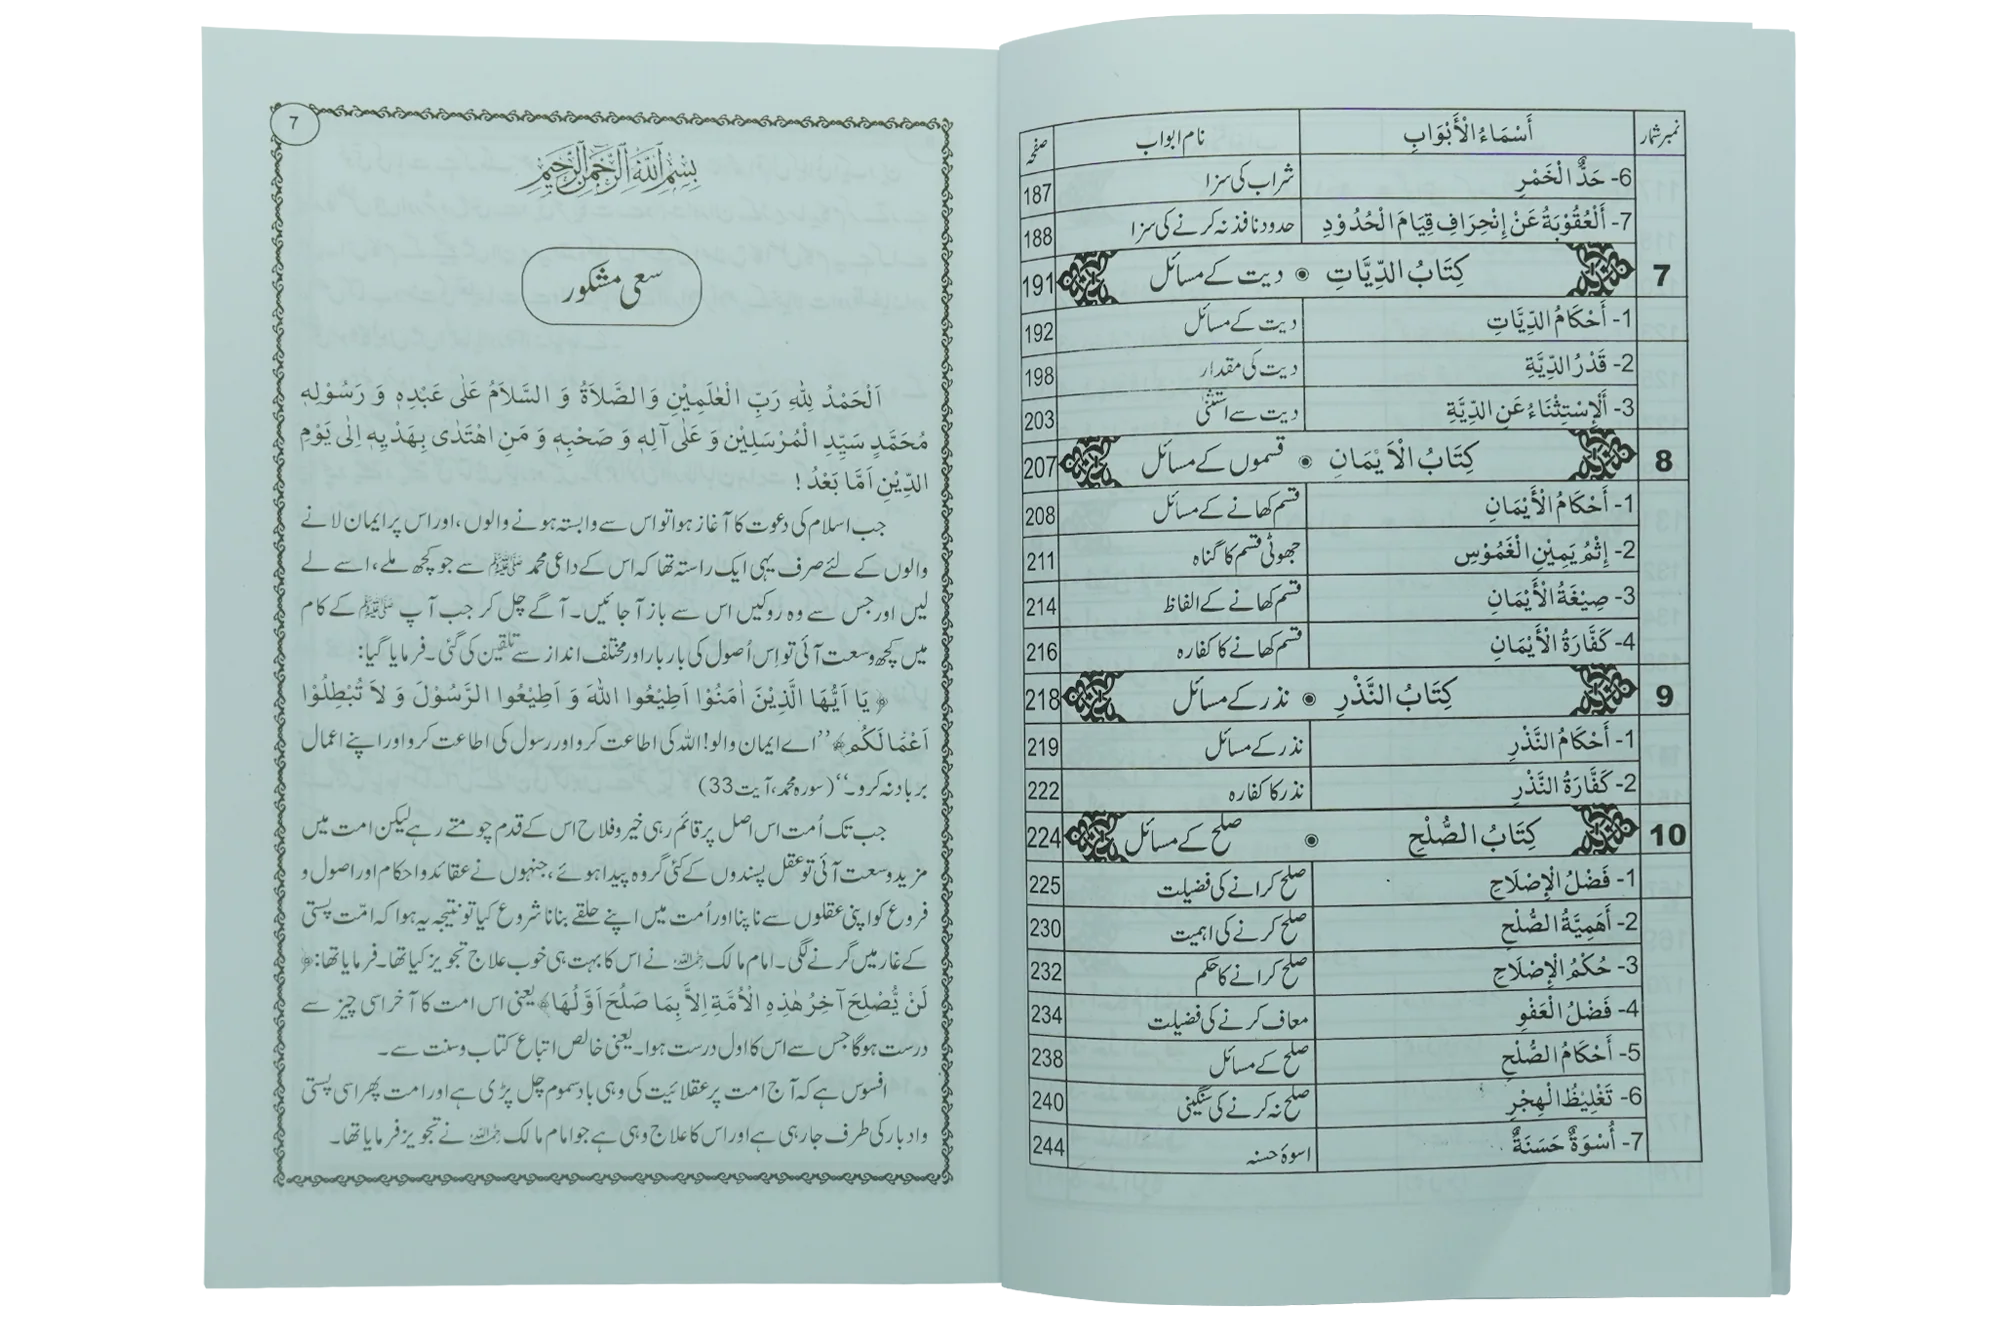 نمبر شمار أَسْمَاءُ الْأَبْوَابِ نام ابواب صفحہ
6- حَدُّ الْخَمْرِ شراب کی سزا 187
7- أَلْعُقُوْبَةُ عَنْ إِنْحِرَافِ قِيَامِ الْحُدُوْدِ حدود نافذ نہ کرنے کی سزا 188
7 كِتَابُ الدِّيَّاتِ ◉ دیت کے مسائل 191
1- أَحْكَامُ الدِّيَّاتِ دیت کے مسائل 192
2- قَدْرُ الدِّيَّةِ دیت کی مقدار 198
3- أَلْإِسْتِثْنَاءُ عَنِ الدِّيَّةِ دیت سے استثنیٰ 203
8 كِتَابُ الْاَيْمَانِ ◉ قسموں کے مسائل 207
1- أَحْكَامُ الْأَيْمَانِ قسم کھانے کے مسائل 208
2- إِثْمُ يَمِيْنِ الْغَمُوْسِ جھوٹی قسم کا گناہ 211
3- صِيْغَةُ الْأَيْمَانِ قسم کھانے کے الفاظ 214
4- كَفَّارَةُ الْأَيْمَانِ قسم کھانے کا کفارہ 216
9 كِتَابُ النَّذْرِ ◉ نذر کے مسائل 218
1- أَحْكَامُ النَّذْرِ نذر کے مسائل 219
2- كَفَّارَةُ النَّذْرِ نذر کا کفارہ 222
10 كِتَابُ الصُّلْحِ ◉ صلح کے مسائل 224
1- فَضْلُ الْإِصْلَاحِ صلح کرانے کی فضیلت 225
2- أَهَمِيَّةُ الصُّلْحِ صلح کرنے کی اہمیت 230
3- حُكْمُ الْإِصْلَاحِ صلح کرانے کا حکم 232
4- فَضْلُ الْعَفْوِ معاف کرنے کی فضیلت 234
5- أَحْكَامُ الصُّلْحِ صلح کے مسائل 238
6- تَغْلِيْظُ الْهِجْرِ صلح نہ کرنے کی سنگینی 240
7- أُسْوَةٌ حَسَنَةٌ اسوۂ حسنہ 244
7
بِسْمِ اللهِ الرَّحْمٰنِ الرَّحِيْمِ
سعی مشکور
اَلْحَمْدُ لِلّٰهِ رَبِّ الْعٰلَمِيْنَ وَالصَّلَاةُ وَ السَّلَامُ عَلٰى عَبْدِهٖ وَ رَسُوْلِهٖ
مُحَمَّدٍ سَيِّدِ الْمُرْسَلِيْنَ وَ عَلٰى آلِهٖ وَ صَحْبِهٖ وَ مَنِ اهْتَدٰى بِهَدْيِهٖ اِلٰى يَوْمِ
الدِّيْنِ اَمَّا بَعْدُ !
جب اسلام کی دعوت کا آغاز ہوا تو اس سے وابستہ ہونے والوں، اور اس پر ایمان لانے
والوں کے لئے صرف یہی ایک راستہ تھا کہ اس کے داعی محمد ﷺ سے جو کچھ ملے، اسے لے
لیں اور جس سے وہ روکیں اس سے باز آ جائیں۔ آگے چل کر جب آپ ﷺ کے کام
میں کچھ وسعت آئی تو اِس اُصول کی بار بار اور مختلف انداز سے تلقین کی گئی۔ فرمایا گیا:
﴿ يَا اَيُّهَا الَّذِيْنَ اٰمَنُوْا اَطِيْعُوا اللهَ وَ اَطِيْعُوا الرَّسُوْلَ وَ لَا تُبْطِلُوْا
اَعْمَالَكُمْ﴾ ’’اے ایمان والو! اللہ کی اطاعت کرو اور رسول کی اطاعت کرو اور اپنے اعمال
برباد نہ کرو۔‘‘ (سورہ محمد، آیت 33)
جب تک اُمت اس اصل پر قائم رہی خیر و فلاح اس کے قدم چومتے رہے لیکن امت میں
مزید وسعت آئی تو عقل پسندوں کے کئی گروہ پیدا ہوئے، جنہوں نے عقائد و احکام اور اصول و
فروع کو اپنی عقلوں سے ناپنا اور اُمت میں اپنے حلقے بنانا شروع کیا تو نتیجہ یہ ہوا کہ امّت پستی
کے غار میں گرنے لگی۔ امام مالک رحمہ اللہ نے اس کا بہت ہی خوب علاج تجویز کیا تھا۔ فرمایا تھا: ﴿
لَنْ يُّصْلِحَ آخِرُ هٰذِهِ الْاُمَّةِ اِلَّا بِمَا صَلُحَ اَوَّلُهَا﴾ یعنی اس امت کا آخر اسی چیز سے
درست ہوگا جس سے اس کا اول درست ہوا۔ یعنی خالص اتباع کتاب و سنت سے۔
افسوس ہے کہ آج امت پر عقلائیت کی وہی باد سموم چل پڑی ہے اور امت پھر اسی پستی
و ادبار کی طرف جارہی ہے اور اس کا علاج وہی ہے جو امام مالک رحمہ اللہ نے تجویز فرمایا تھا۔